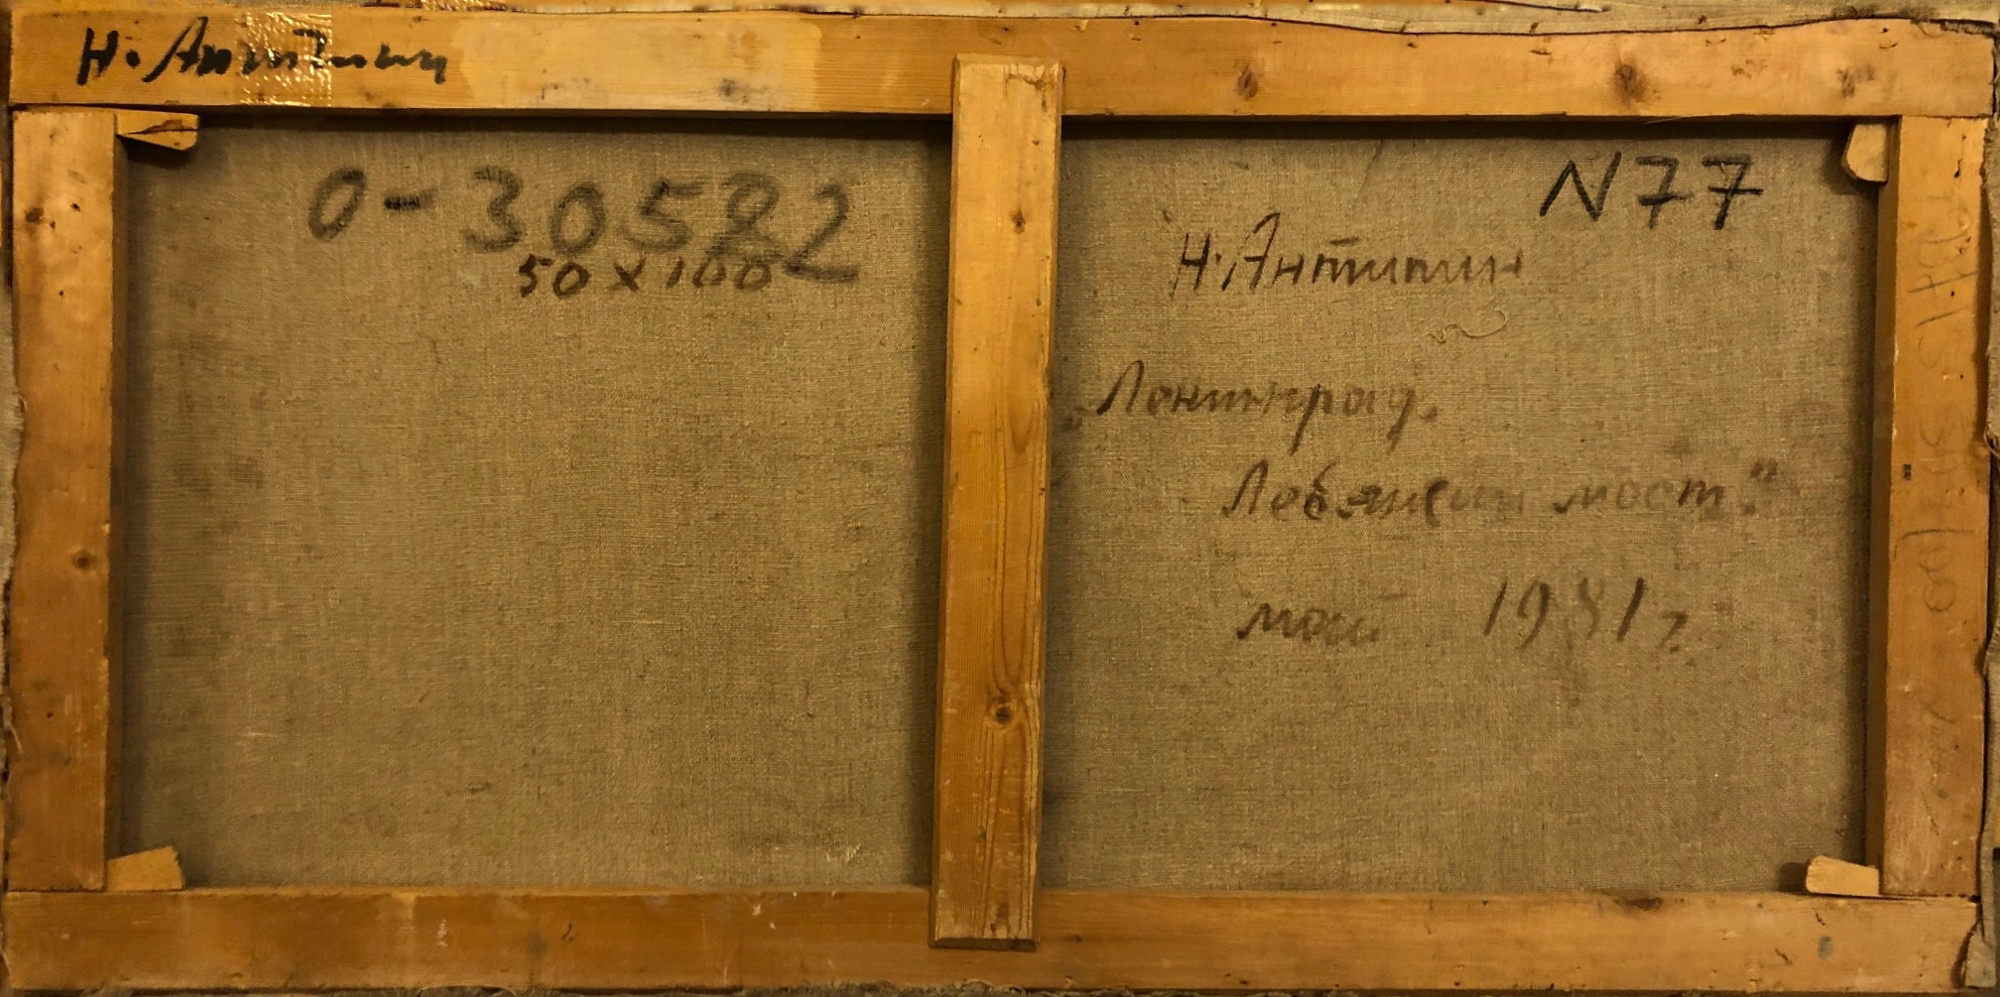 Н. Антипин
0-30582
50 x 100
N 77
Н. Антипин
„Ленинград.
Лебяжий мост."
май 1981 г.